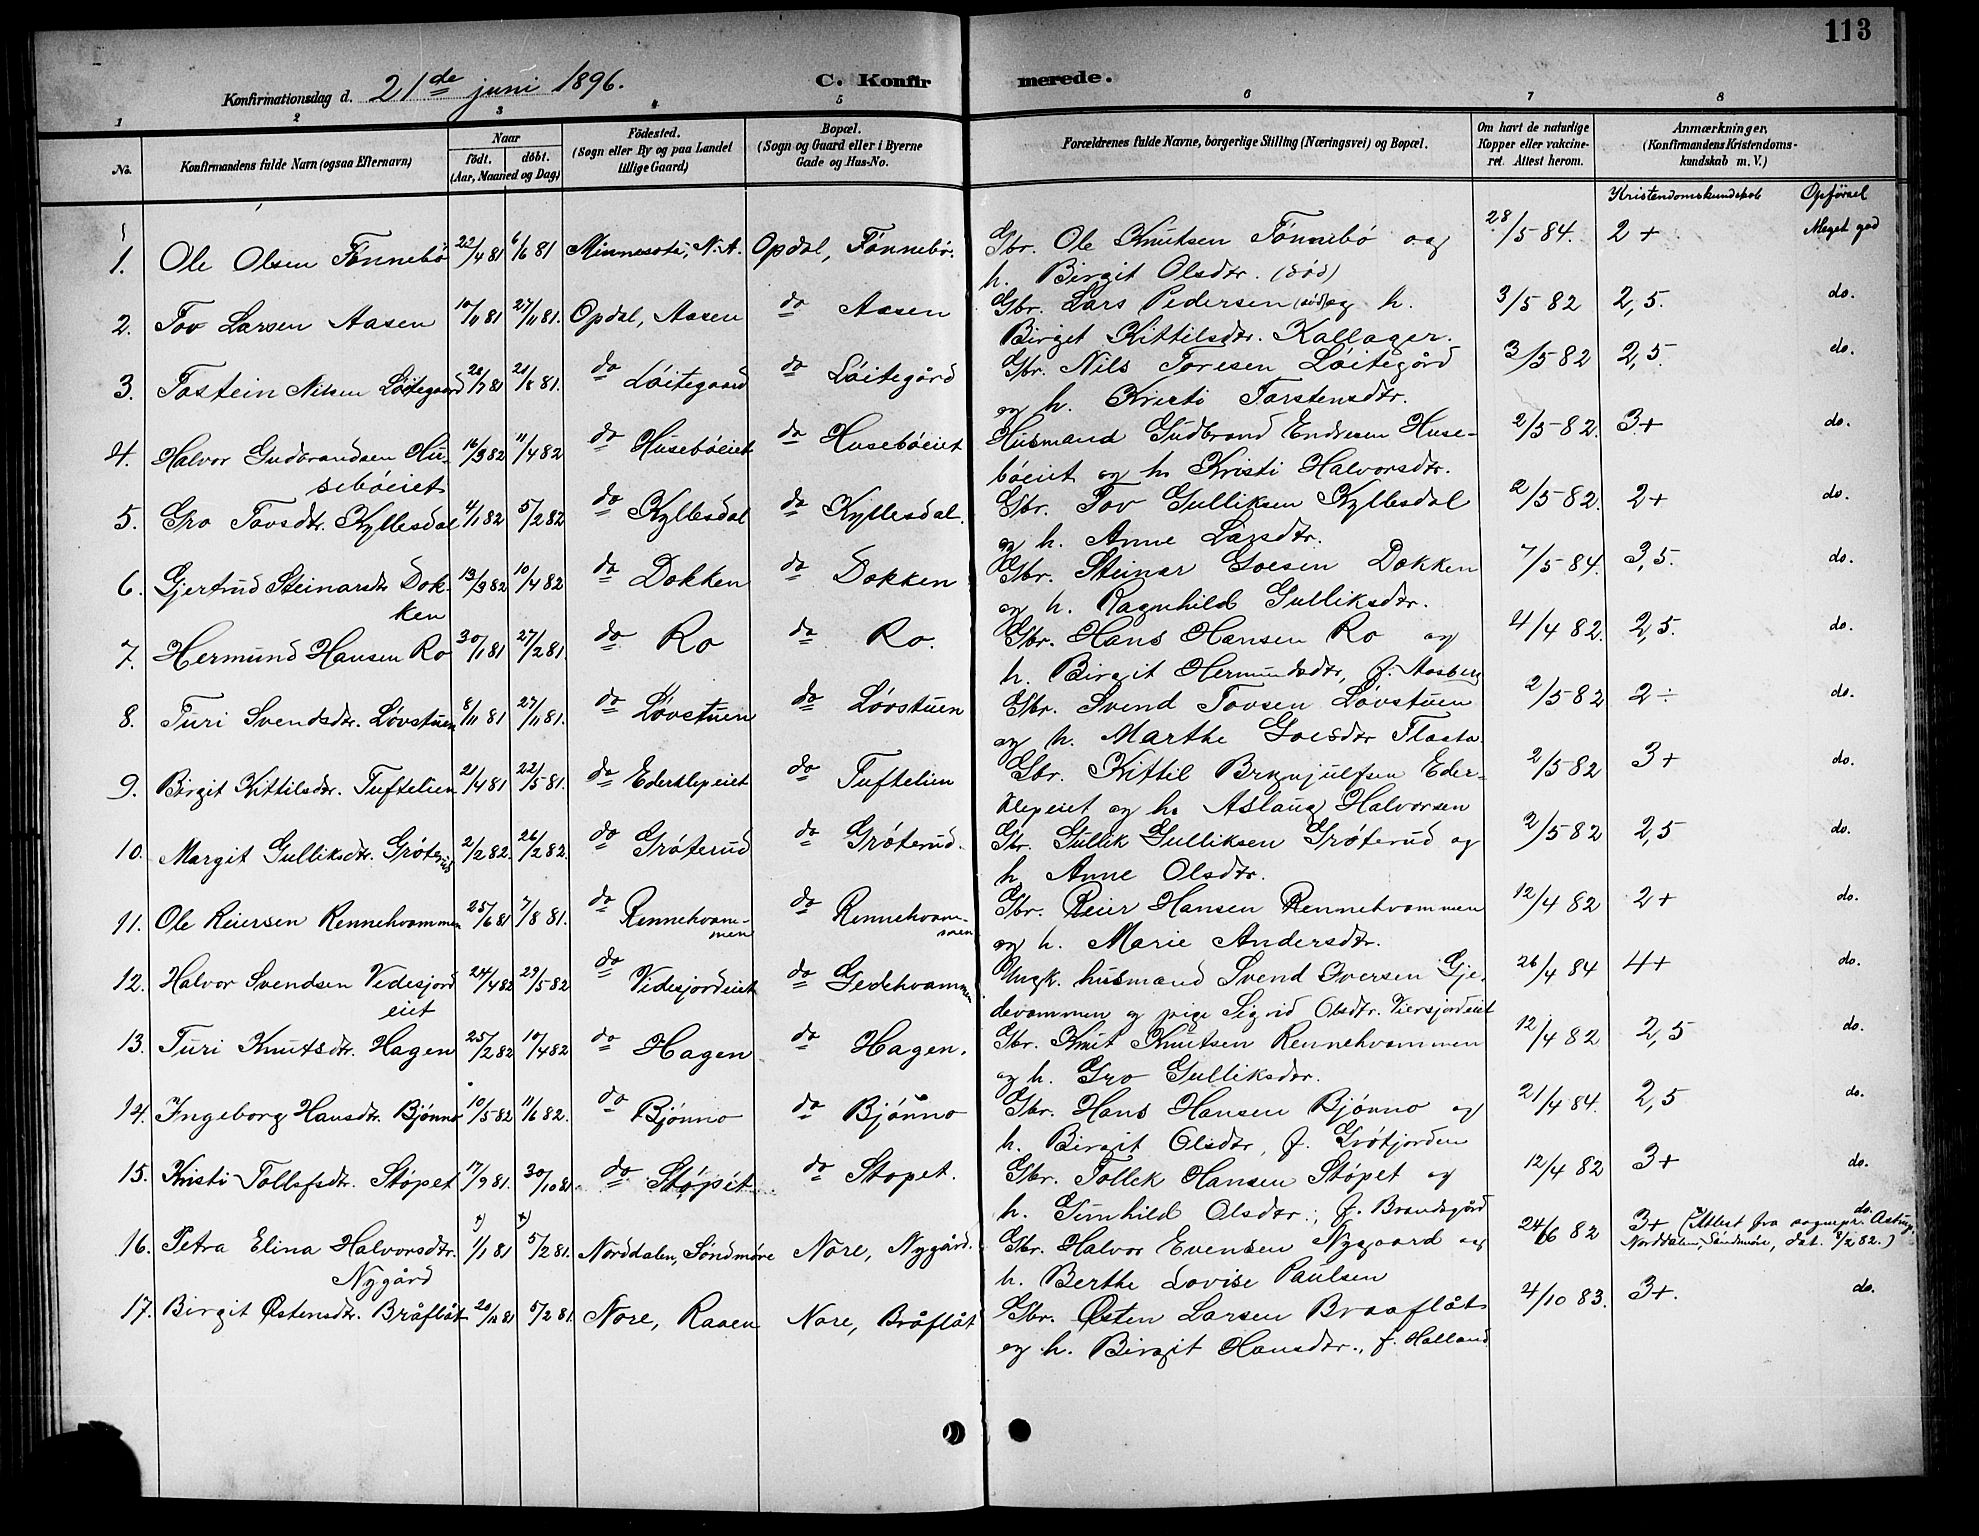 113
Konfirmationsdag d. 21de juni 1896. C. Konfirmerede.
1 2 3 4 5 6 7 8
No. Konfirmandens fulde Navn (ogsaa Efternavn) Naar födt. döbt. (Aar, Maaned og Dag) Födested. (Sogn eller By og paa Landet tillige Gaard) Bopæl. (Sogn og Gaard eller i Byerne Gade og Hus-No. Forældrenes fulde Navne, borgerlige Stilling (Næringsvei) og Bopæl. Om havt de naturlige Kopper eller vakcineret. Attest herom. Anmærkninger. (Konfirmandens Kristendomskundskab m. V.)
Kristendomskundskab Opførsel
1. Ole Olsen Fönnebö 22/4 81 6/6 81 Minnesota, N. A. Opdal, Fönnebö. Gbr. Ole Knutsen Fönnebö og 28/5 84. 2+ Meget god
h. Birgit Olsdtr. (död)
2. Tov Larsen Aasen 10/11 81 27/11 81. Opdal, Aasen do Aasen Gbr. Lars Pedersen (död) og h. 3/5 82 2,5. do.
Birgit Kittilsdtr. Kallager.
3. Tostein Nilsen Löitegaard 20/7 81 21/8 81. do Löitegaard do Löitegård Gbr. Nils Toresen Löitegård 3/5 82 2,5. do.
og h. Kristi Torstensdtr.
4. Halvor Gudbrandsen Hu- 16/3 82 11/4 82 do Huseböeiet do Huseböeiet Husmand Gudbrand Endresen Huse- 2/5 82. 3+ do.
seböeiet böeiet og h. Kristi Halvorsdtr.
5. Gro Tovsdtr. Kyllesdal 4/1 82 5/2 82 do Kyllesdal do Kyllesdal. Gbr. Tov Gulliksen Kyllesdal 2/5 82. 2+ do.
og h. Anne Larsdtr.
6. Gjertrud Steinarsdtr Dok- 13/3 82 10/4 82 do Dokken do Dokken Gbr. Steinar Goesen Dokken 7/5 84. 3,5. do.
ken og h. Ragnhild Gulliksdtr.
7. Hermund Hansen Ro 30/1 81 27/2 81. do Ro do Ro. Gbr. Hans Hansen Ro og 4/4 82. 2,5. do.
h. Birgit Hermundsdtr, f. Aasberg
8. Turi Svendsdtr. Lövstuen 8/11 81 27/11 81. do Lövstuen do Lövstuen Gbr. Svend Tovsen Lövstuen 2/5 82 2÷ do.
og h. Marthe Goesdtr Flaata.
9. Birgit Kittilsdtr. Tuftelien 21/4 81 22/5 81. do Ederklepeiet do Tuftelien Gbr. Kittil Brynjulfsen Eder- 2/5 82 3+ do.
klepeiet og h. Aslaug Halvorsen
10. Margit Gulliksdtr. Gröterud 2/2 82. 26/2 82. do Gröterud do Gröterud. Gbr. Gullik Gulliksen Gröterud og 2/5 82 2,5 do.
h. Anne Olsdtr.
11. Ole Reiersen Rennehvammen 25/6 81 7/8 81. do Rennehvam- do Rennehvam- Gbr. Reier Hansen Rennehvammen 12/4 82 2+ do.
men men og h. Marie Andersdtr.
12. Halvor Svendsen Videsjord 24/4 82 29/5 82 do Videsjordeiet do Gedehvammen Ungk. husmand Svend Iversen Gje- 26/4 84 4+ do.
eiet devammen og pige Sigrid Olsdtr. Viersjordeiet
13. Turi Knutsdtr. Hagen 25/2 82 10/4 82 do Hagen do Hagen. Gbr. Knut Knutsen Rennehvammen 12/4 82 2,5 do.
og h. Gro Gulliksdtr.
14. Ingeborg Hansdtr. Bjönno 10/5 82 11/6 82. do Bjönno do Bjönno Gbr. Hans Hansen Bjönno og 21/4 84. 2,5 do.
h. Birgit Olsdtr, f. Gröfjorden
15. Kristi Tollefsdtr. Stöpet 17/9 81. 30/10 81. do Stöpet do Stopet. Gbr. Tollek Hansen Stöpet og 12/4 82 3+ do.
h. Gunhild Olsdtr., f. Brandsgård
16. Petra Elina Halvorsdtr. x) 1/1 81 x) 5/2 81. Norddalen, Söndmöre Nore, Nygård. Gbr. Halvor Evensen Nygaard og 24/6 82 3+ (x Attest fra sognepr. Astrup, do.
Nygård h. Berthe Lovise Paulsen Norddalen, Söndmöre, dat. 8/2 82.)
17. Birgit Östensdtr. Bråflåt 20/11 81 5/2 81. Nore, Raaen Nore, Bråflåt Gbr. Östen Larsen Braaflåt 4/10 83. 3+. do.
og h. Birgit Hansdtr., f. Halland